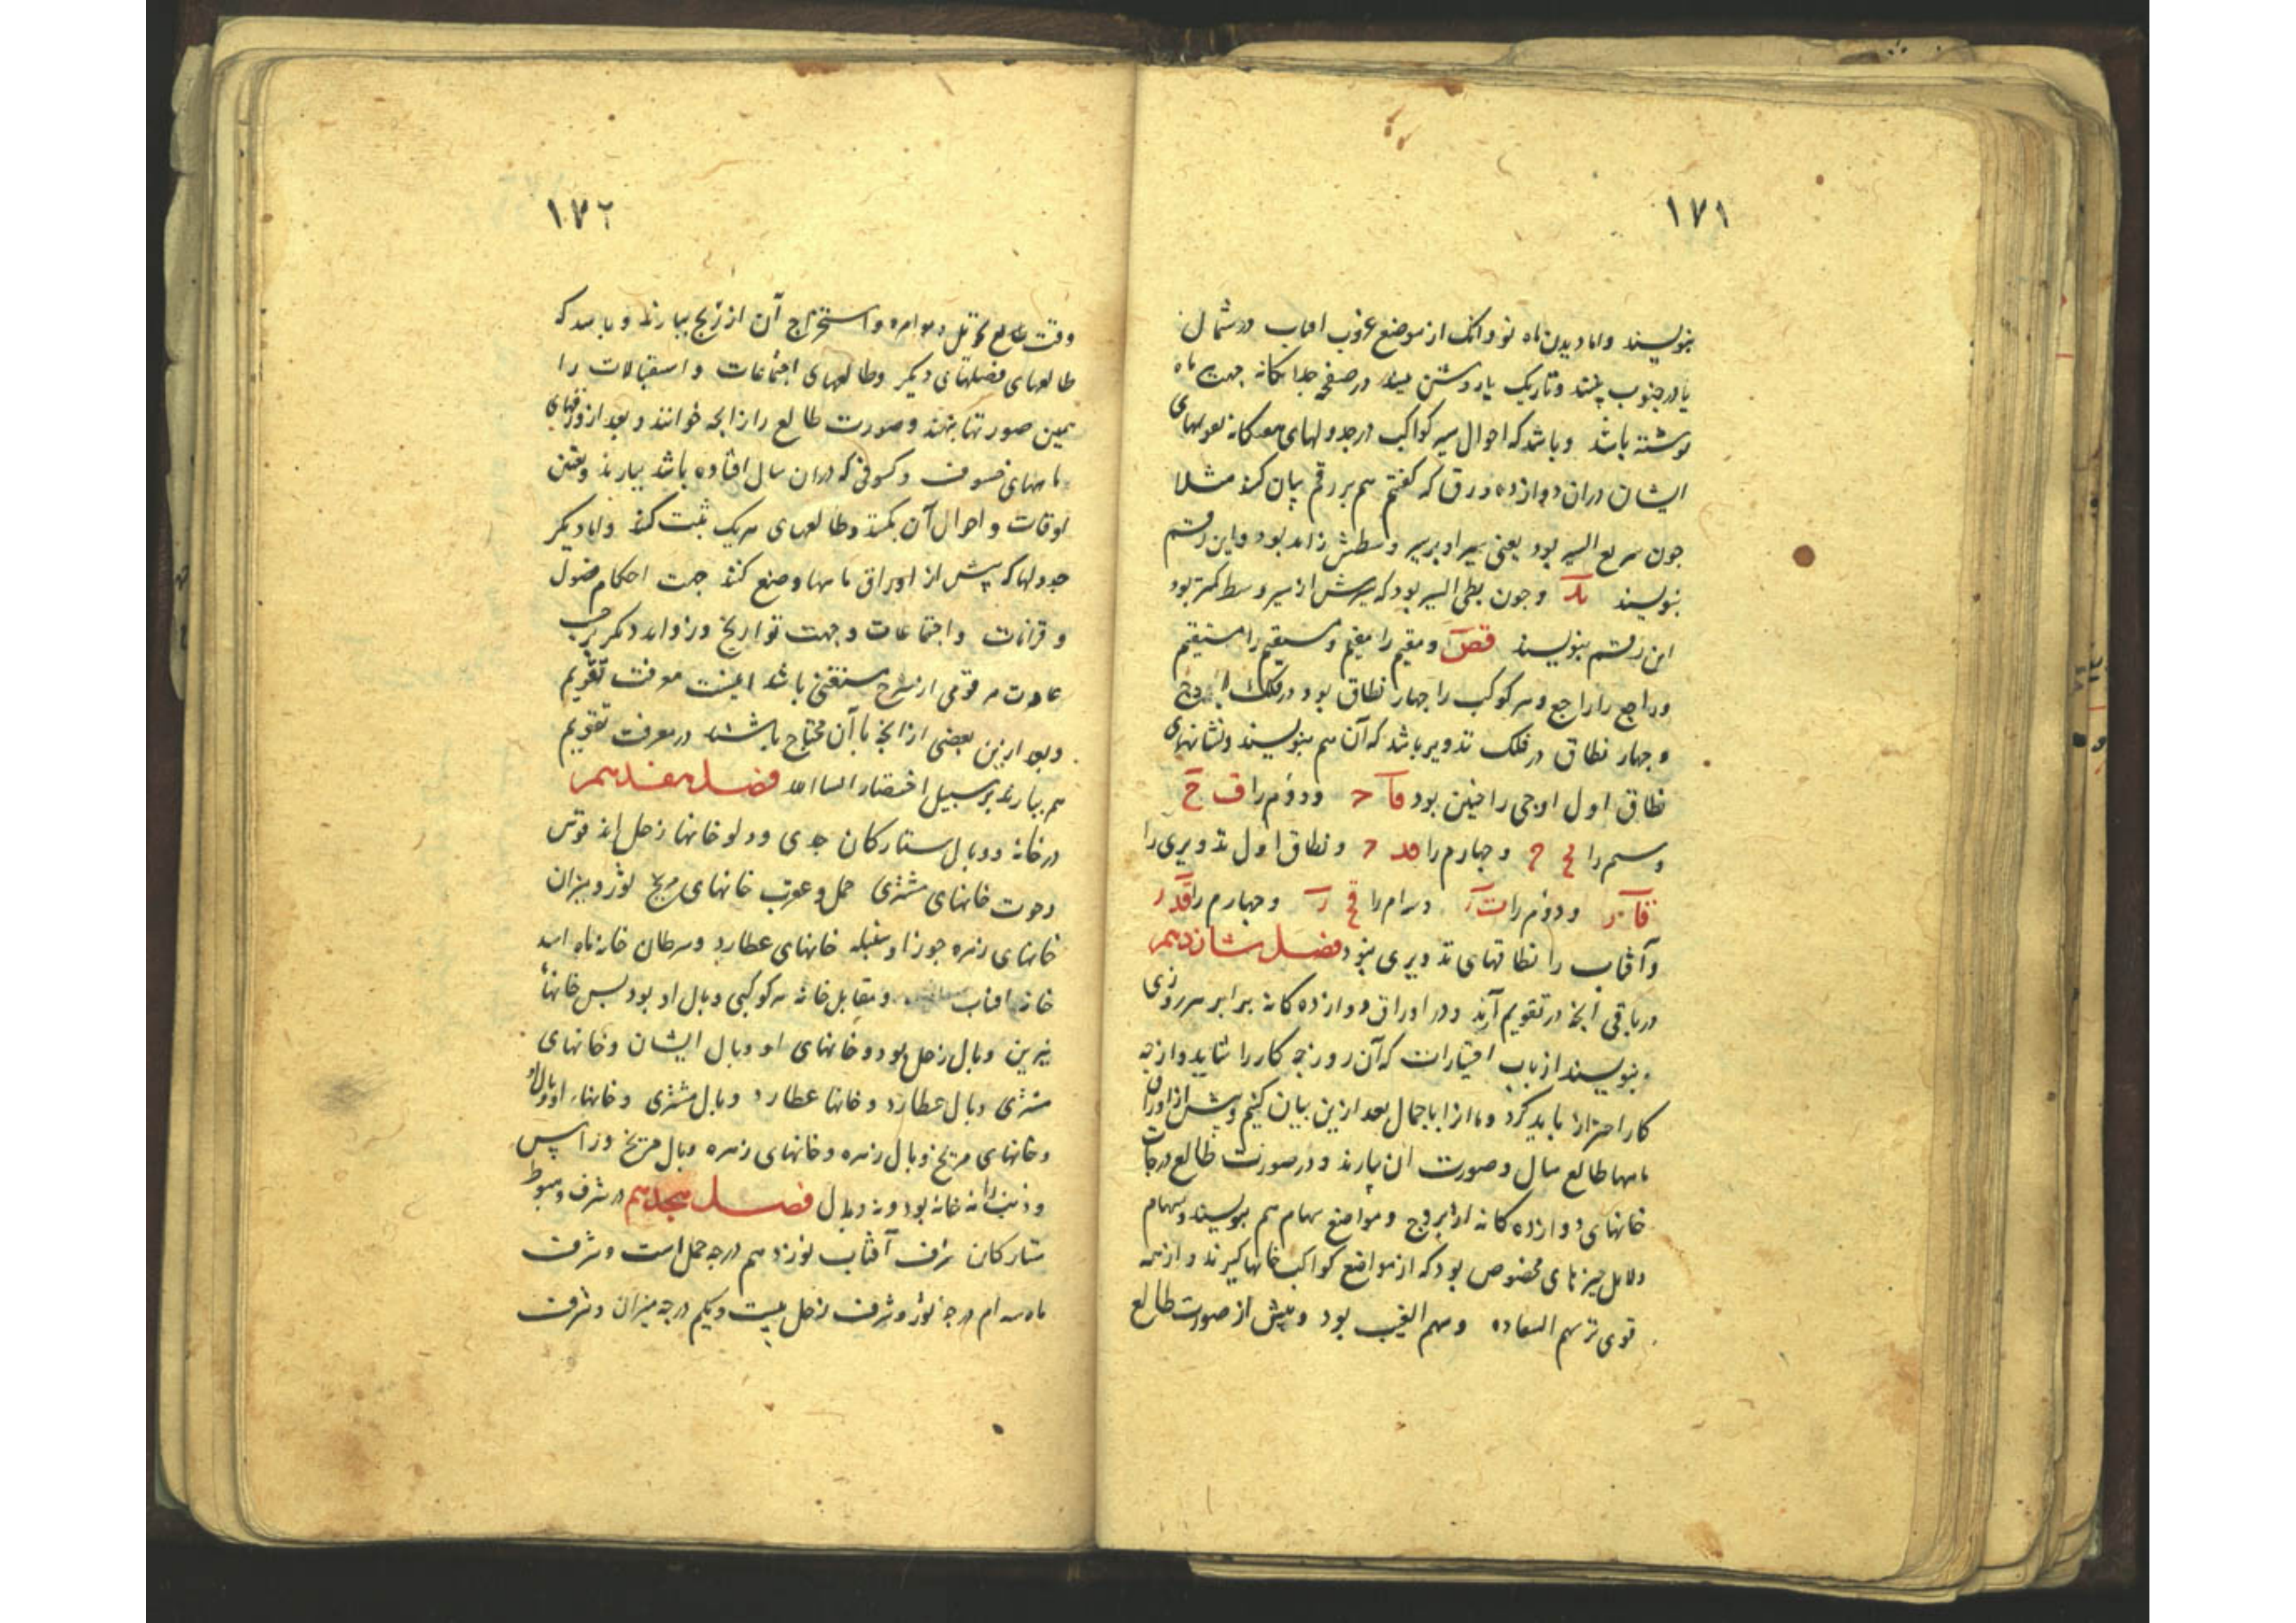 ١٧١
بنویسند واما دیدن ماه نو وانک از موضع غروب افتاب در شمال
یا در جنوب بینند وتاریک یا روشن در صفحه جداکانه جهت ماه
نوشته باشد وباشد که احوال سیر کواکب در جدولهای
ایشان دران دوازده ورق که کفتیم هم بر رقم بیان کنند مثلا
جون سریع السیر بود یعنی سیر او بر سیر وسطش زاید بود واین رقم
بنویسند وجون بطی السیر بود که سیرش از سیر وسط کمتر بود
این رقم بنویسند قص ومقیم را مقیم ومستقیم را مستقیم
وراجع را راجع وهر کوکب را جهار نطاق بود در فلک
وجهار نطاق در فلک تدویر باشد که آن هم بنویسند ونشانهای
نطاق اول اوجی را جنین بود ودوم را
وسیم را وجهارم را ونطاق اول تدویری را
ودوم را وسیم را وجهارم را
وآفتاب را نطاقهای تدویری نبود فصل شانزدهم
در باقی انجه در تقویم آرند ودر اوراق دوازده کانه برابر هر روزی
بنویسند از باب اختیارات که آن روز جه کار را شاید واز جه
کار احتراز باید کرد وما از اباجمال بعد ازین بیان کنیم وپیش از اوراق
ماهها طالع سال وصورت آن بیارند ودر صورت طالع درجات
خانهای دوازده کانه از بروج ومواضع سهام هم بنویسند وسهام
دلایل جیزهای مخصوص بود که از مواضع کواکب خانها کیرند واز همه
قوی تر سهم السعاده وسهم الغیب بود وپیش از صورت طالع
١٧٢
وقت واستخراج آن از زیج بیارند وباشد که
طالعهای فصلهای دیکر وطالعهای اجتماعات واستقبالات را
همین صورتها بنهند وصورت طالع را زایجه خوانند وبعد از ورقهای
ماههای خسوف وکسوفی که دران سال افتاده باشد بیارند وتعیین
اوقات واحوال آن بکنند وطالعهای هریک ثبت کنند واما دیکر
جدولها که پیش از اوراق ماهها وضع کنند جهت احکام فصول
وقرانات واجتماعات وجهت تواریخ وزواید دیکر بر حسب
عادت هر قومی از شرح مستغنی باشد اینست معرفت تقویم
وبعد ازین بعضی از انجه بآن محتاج باشند در معرفت تقویم
هم بیارند بر سبیل اختصار فصل هفدهم
در خانه ووبال ستارکان جدی ودلو خانها زحل اند قوس
وحوت خانهای مشتری حمل وعقرب خانهای مریخ ثور ومیزان
خانهای زهره جوزا وسنبله خانهای عطارد وسرطان خانه ماه اسد
خانه افتاب ومقابل خانه هر کوکبی وبال او بود پس خانهای
نیرین وبال زحل بود وخانهای او وبال ایشان وخانهای
مشتری وبال عطارد وخانها عطارد وبال مشتری وخانهاء او وبال او
وخانهای مریخ وبال زهره وخانهای زهره وبال مریخ وراس
وذنب را نه خانه بود ونه وبال فصل هجدهم در شرف وهبوط
ستارکان شرف آفتاب نوزدهم درجه حمل است وشرف
ماه سه ام درجه ثور وشرف زحل بیست ویکم درجه میزان وشرف